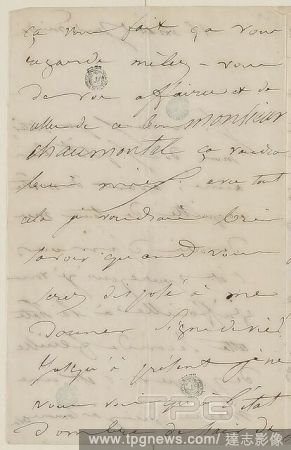 ça vous fait ça vous
regarde mêlez-vous
de vos affaires et de
celles de ce bon monsieur
chaumontel ça vaudra
bien mieux. avec tout
cela je voudrais bien
savoir quand vous
serez disposé à me
donner signe de vie!
Jusqu'à présent je ne
vous vois qu'à l'état
d'ombre
TPG
www.tpgnews.com/達志影像